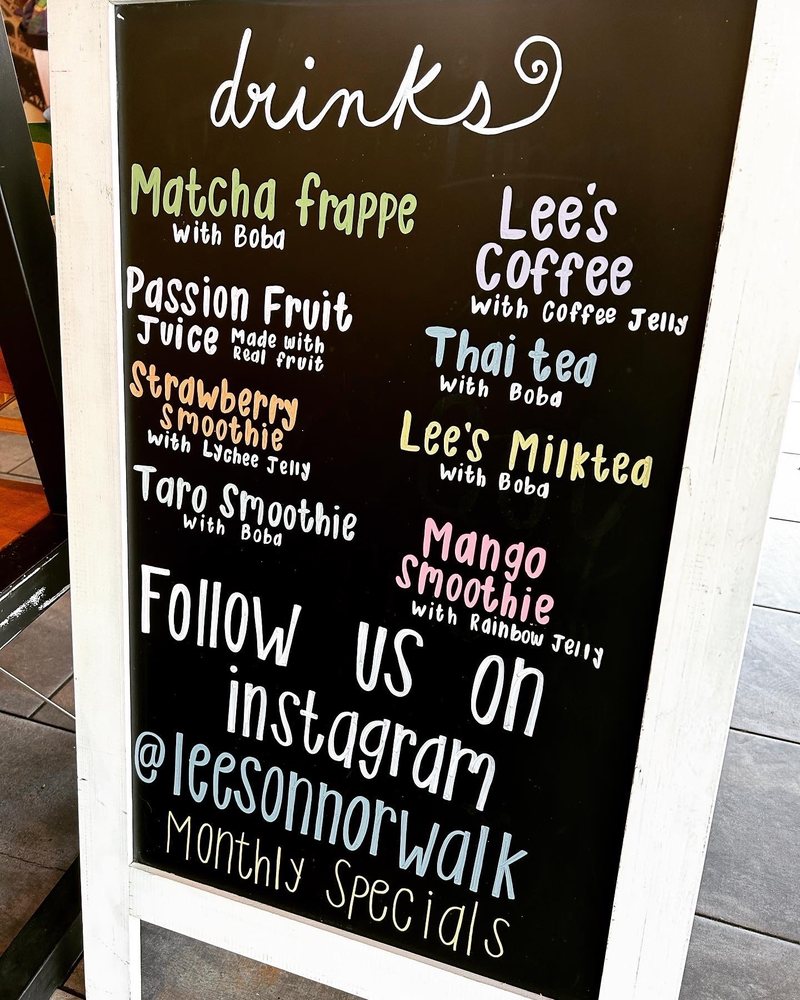 drinks
Matcha frappe
With Boba
Passion Fruit
Juice Made with
Real fruit
Strawberry
Smoothie
With Lychee Jelly
Taro Smoothie
With Boba
Lee's
Coffee
With Coffee Jelly
Thai tea
With Boba
Lee's Milktea
With Boba
Mango
Smoothie
With Rainbow Jelly
Follow us on
instagram
@leesonnorwalk
Monthly Specials